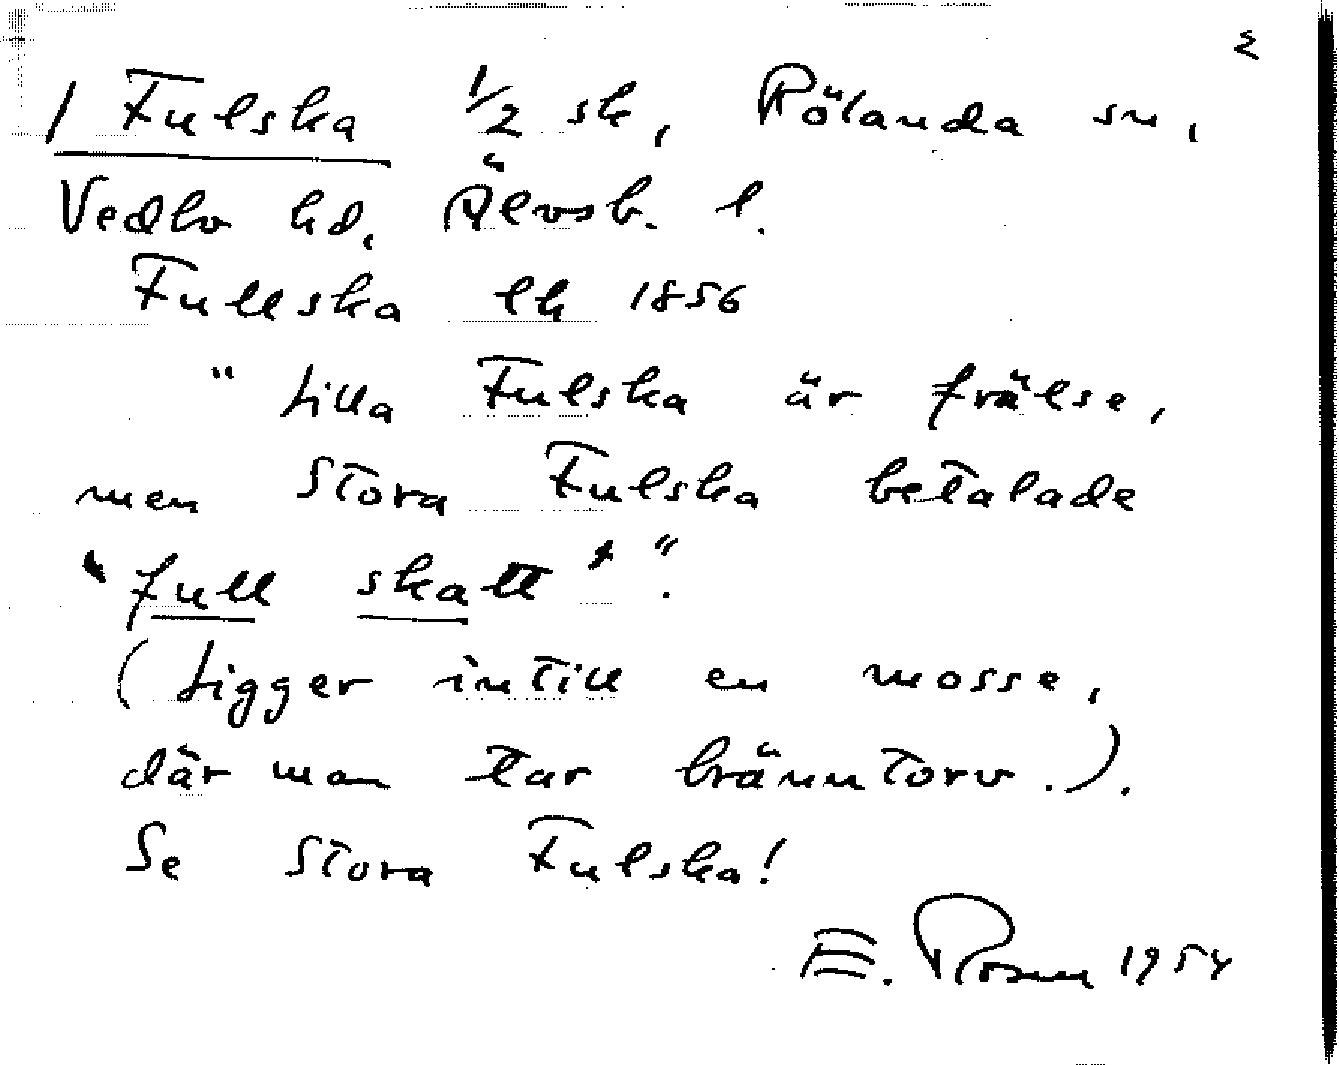 2
/ Fulska 1/2 sk, Rölanda sn,
Vedbo hd, Älvsb. l.
Fullska Ek 1856
" Lilla Fulska är frälse,
men Stora Fulska betalade
'full skatt' ".
(Ligger intill en mosse,
där man tar bränntorv.).
Se Stora Fulska!
E. Rosen 1954